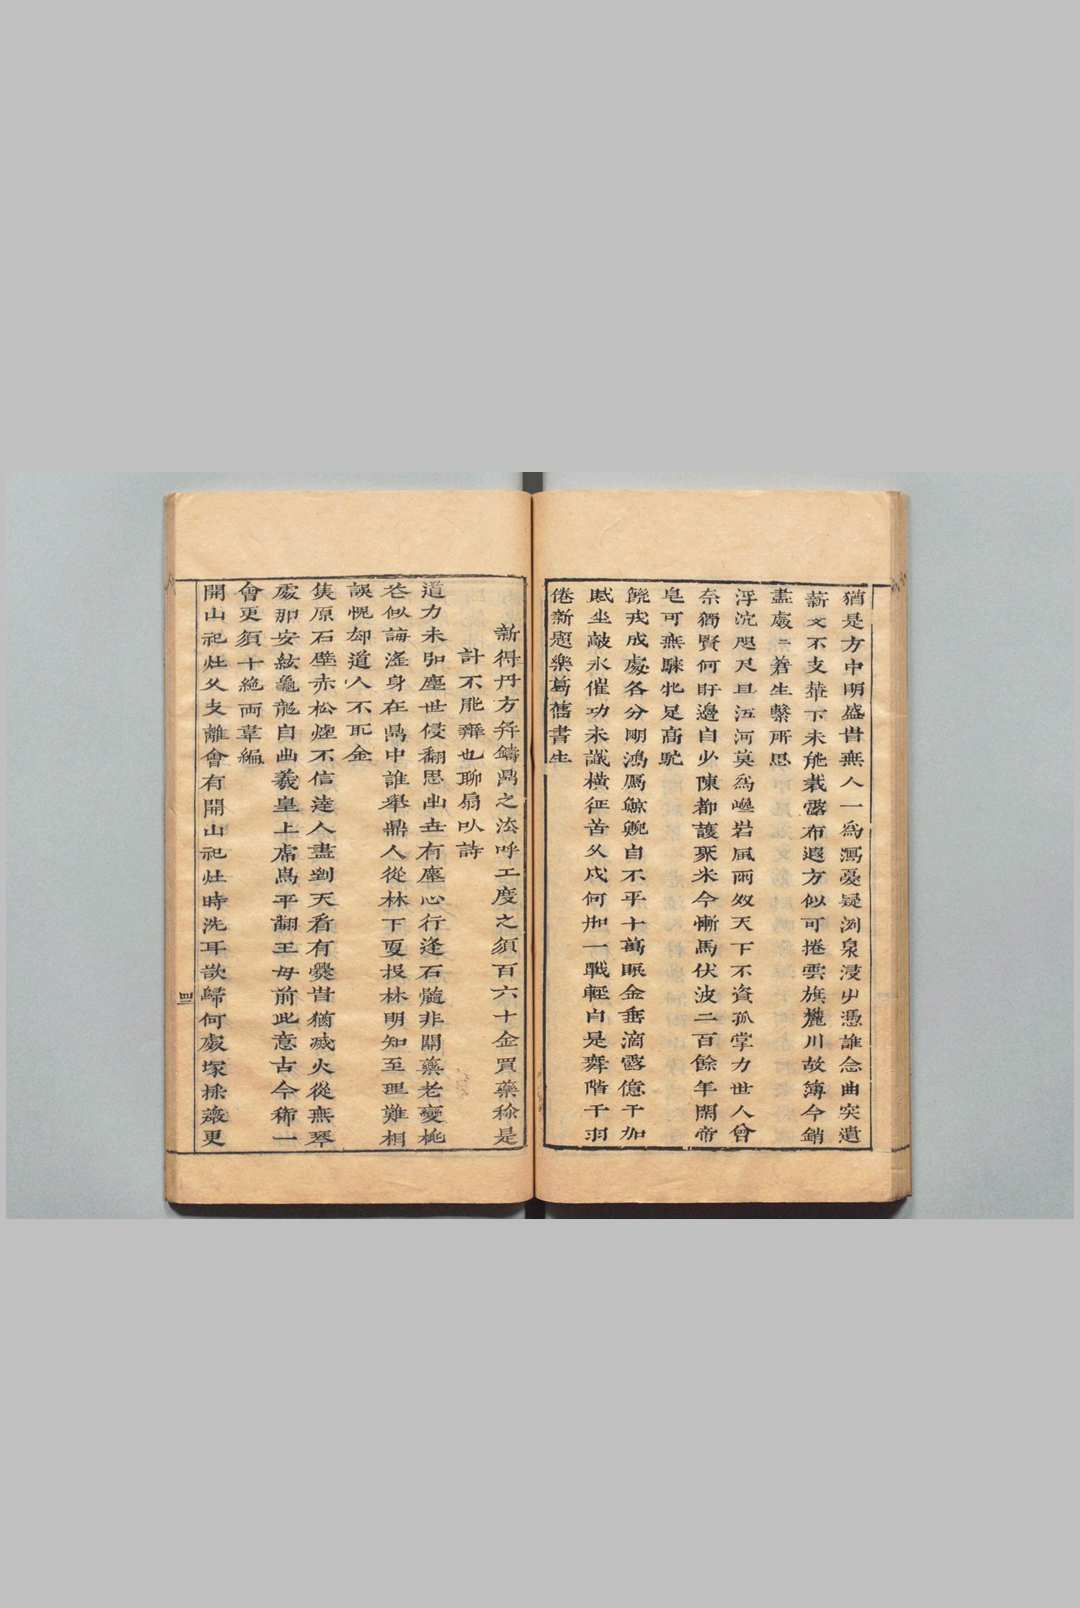 猶是方中明盛世無人一爲寫憂疑洌泉浸屮憑誰念曲突遺
薪文不支華下未能裁露布遐方似可捲雲旗麓川故簿今銷
盡處二蒼生繫所思
浮沉咫尺且沍河莫爲巒岩風雨奴天下不資孤掌力世人曾
奈獨賢何旴邊自少陳都護聚米今慚馬伏波二百餘年閑帝
皂可無騋牝足高駝
饒戎成處各分剛鴻鴈鯨鯢自不平十萬眠金垂滴露億千加
賦坐敲氷催功未識橫征苦久戍何如一戰輕自是舞階干羽
倦新題樂葛舊書生
新得丹方幷鑄鼎之法呼工度之須百六十金買藥稌是
計不能辦也聊扇以詩
道力未如塵世侵翻思出世有塵心行逢石髓非關藥老變桃
花似誨淫身在鼎中誰舉鼎人從林下更投林明知至理難相
誤愧却道人不死金
隻原石壁赤松煙不信達人盡到天看有爨昔猶滅火從無琴
處那安絃龜龍自曲羲皇上虜鳥平翻王母前此意古今稀一
會更須十絶兩韋編
開山祀灶久支離會有開山祀灶時洗耳欲歸何處塚採薇更
四